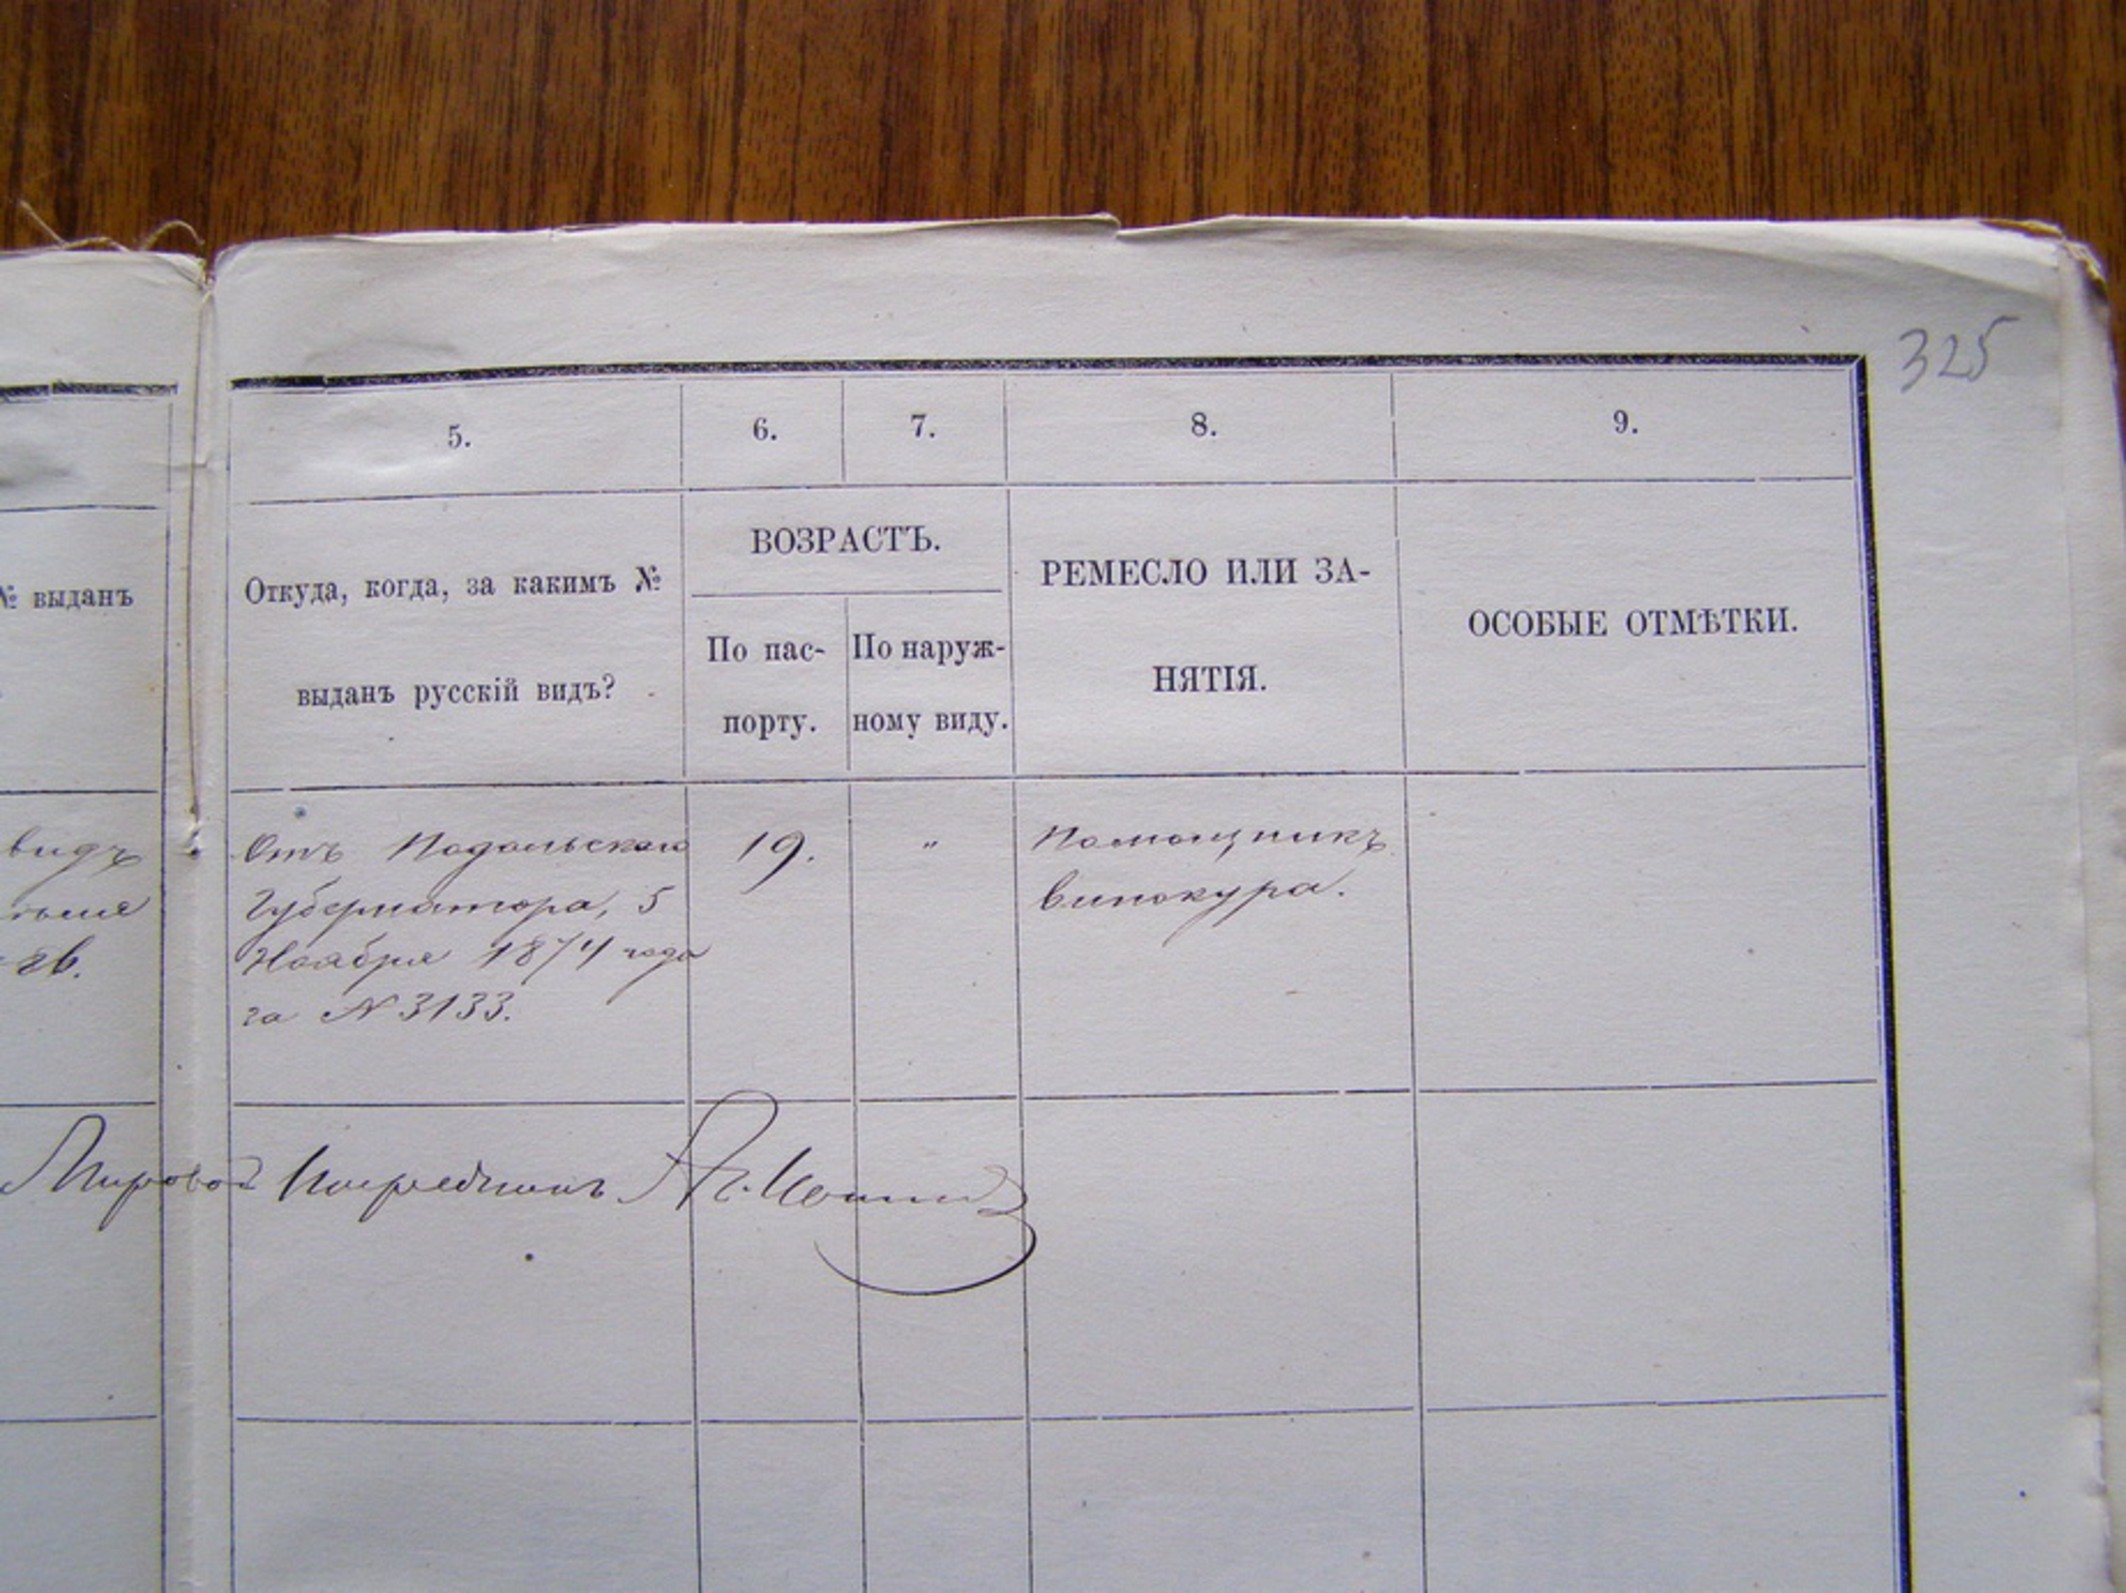 325
5. 6. 7. 8. 9.
№ выданъ
Откуда, когда, за какимъ №
выданъ русскій видъ?
ВОЗРАСТЪ.
По пас-
порту.
По наруж-
ному виду.
РЕМЕСЛО ИЛИ ЗА-
НЯТІЯ.
ОСОБЫЕ ОТМѢТКИ.
видъ
Отъ Подольскаго
Губернатора, 5
Ноября 1874 года
за № 3133.
19.
"
Помощникъ
винокура.
Мировой Посредникъ